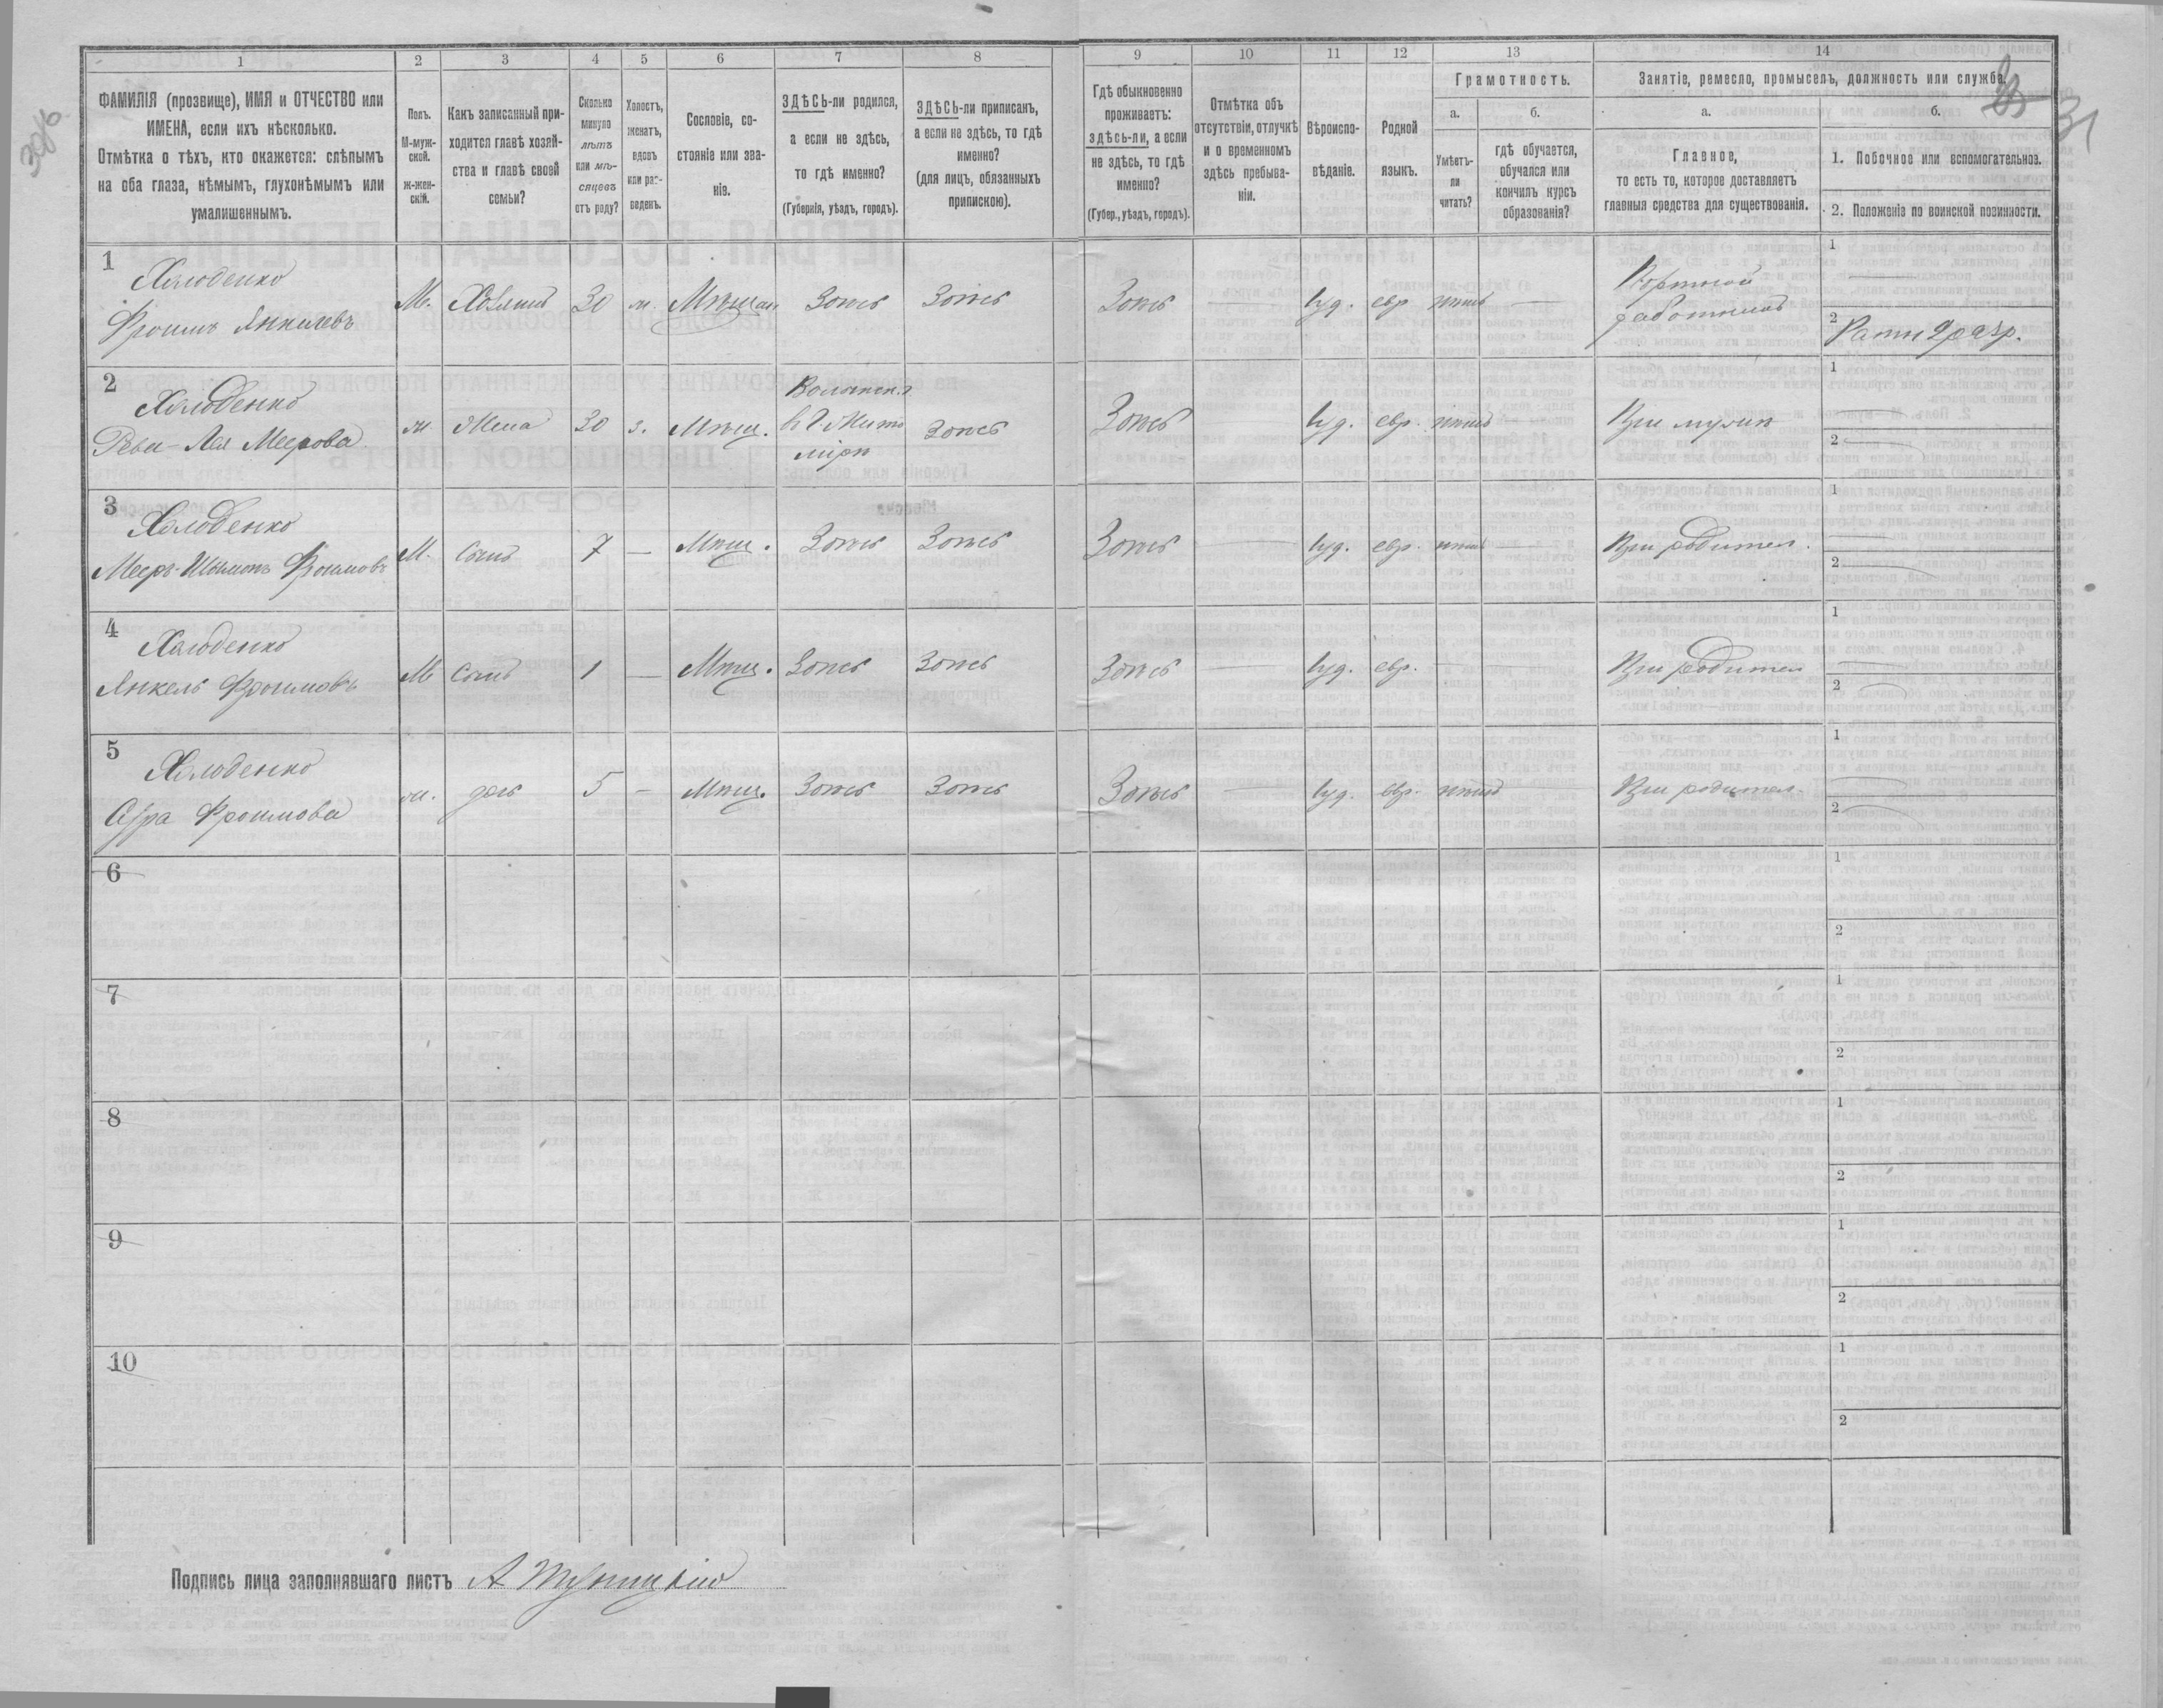 1 2 3 4 5 6 7 8 9 10 11 12 13 14
ФАМИЛІЯ (прозвище), ИМЯ и ОТЧЕСТВО или
ИМЕНА, если ихъ нѣсколько.
Отмѣтка о тѣхъ, кто окажется: слѣпымъ
на оба глаза, нѣмымъ, глухонѣмымъ или
умалишеннымъ.
Полъ.
М-муж-
ской.
ж-жен-
скій.
Какъ записанный при-
ходится главѣ хозяй-
ства и главѣ своей
семьи?
Сколько
минуло
лѣтъ
или мѣ-
сяцевъ
отъ роду?
Холостъ,
женатъ,
вдовъ
или раз-
веденъ.
Сословіе, со-
стояніе или зва-
ніе.
ЗДѢСЬ-ли родился,
а если не здѣсь,
то гдѣ именно?
(Губернія, уѣздъ, городъ).
ЗДѢСЬ-ли приписанъ,
а если не здѣсь, то гдѣ
именно?
(для лицъ, обязанныхъ
припискою).
Гдѣ обыкновенно
проживаетъ:
здѣсь-ли, а если
не здѣсь, то гдѣ
именно?
(Губер., уѣздъ, городъ).
Отмѣтка объ
отсутствіи, отлучкѣ
и о временномъ
здѣсь пребыва-
ніи.
Вѣроиспо-
вѣданіе.
Родной
языкъ.
Грамотность.
а.
Умѣетъ-
ли
читать?
б.
гдѣ обучается,
обучался или
кончилъ курсъ
образованія?
Занятіе, ремесло, промыселъ, должность или служба.
а.
Главное,
то есть то, которое доставляетъ
главныя средства для существованія.
б.
1. Побочное или вспомогательное.
2. Положеніе по воинской повинности.
31
1
Холоденко
Фроимъ Янкелевъ
М. Хозяинъ 30 ж. Мѣщан. Здѣсь Здѣсь Здѣсь — Іуд. евр нѣтъ —
Портной
работникъ
1
2 Ратн 2 разр.
2
Холоденко
Рева-Лея Меерова
ж Жена 30 з. Мѣщ.
Волынск.
г. Жито
міръ
Здѣсь Здѣсь Іуд. евр. нѣтъ При мужѣ
1
2
3
Холоденко
Мееръ-Шлиомъ Фроимовъ
М. Сынъ 7 — Мѣщ. Здѣсь Здѣсь Здѣсь — Іуд. евр. нѣтъ — При родител.
1
2
4
Холоденко
Янкель Фроимовъ
М Сынъ 1 — Мѣщ. Здѣсь Здѣсь Здѣсь — Іуд. евр. — При родител
1
2
5
Холоденко
Сура Фроимова
ж. дочь 5 — Мѣщ. Здѣсь Здѣсь Здѣсь — Іуд. евр. нѣтъ При родител.
1
2
6
1
2
7
1
2
8
1
2
9
1
2
10
1
2
Подпись лица заполнявшаго листъ